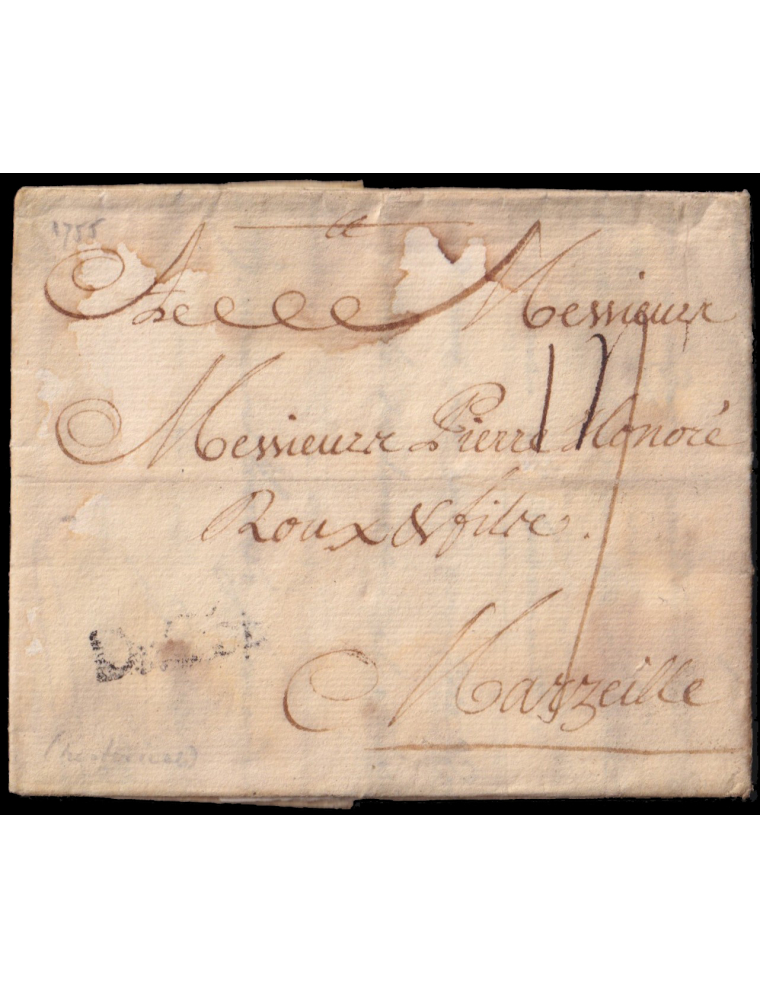 1755
A Messieurs
Messieurs Pierre Honoré
Roux & fils.
Marzeille